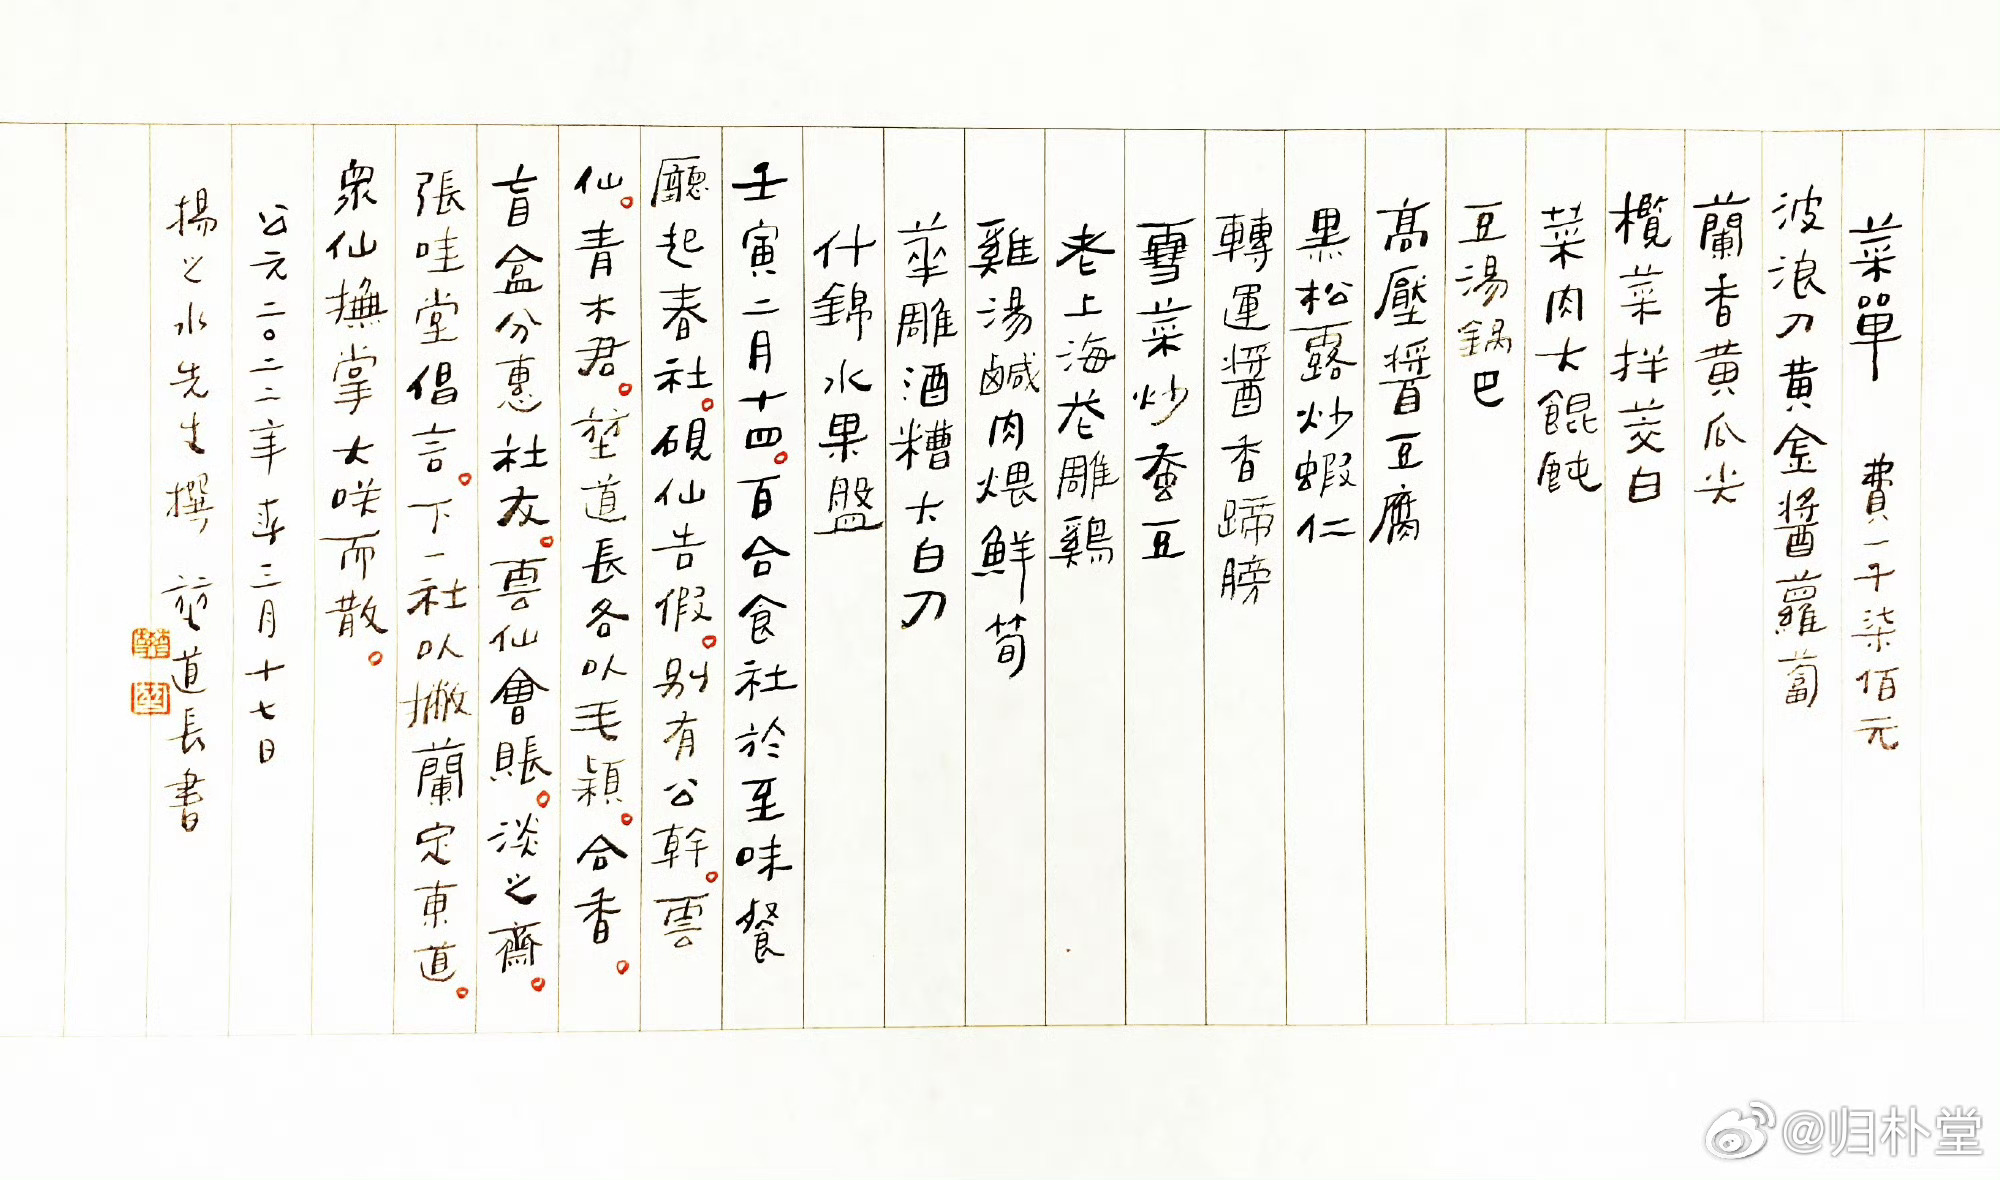 菜單　費一千柒佰元
波浪刀黄金醬蘿蔔
蘭香黄瓜尖
欖菜拌茭白
菜肉大餛飩
豆湯鍋巴
髙壓醬豆腐
黒松露炒蝦仁
轉運醬香蹄膀
雪菜炒蚕豆
老上海花雕鷄
雞湯鹹肉煨鮮筍
華雕酒糟大白刀
什錦水果盤
壬寅二月十四。百合食社於至味餐
廳起春社。硯仙告假。别有公幹。雲
仙。青木君。堃道長各以毛穎。合香。
盲盒分惠社友。雲仙會賬。淡之齋。
張哇堂倡言。下一社以撇蘭定東道。
衆仙撫掌大咲而散。
公元二〇二二年 三月十七日
揚之水先生撰　堃道長書
@归朴堂